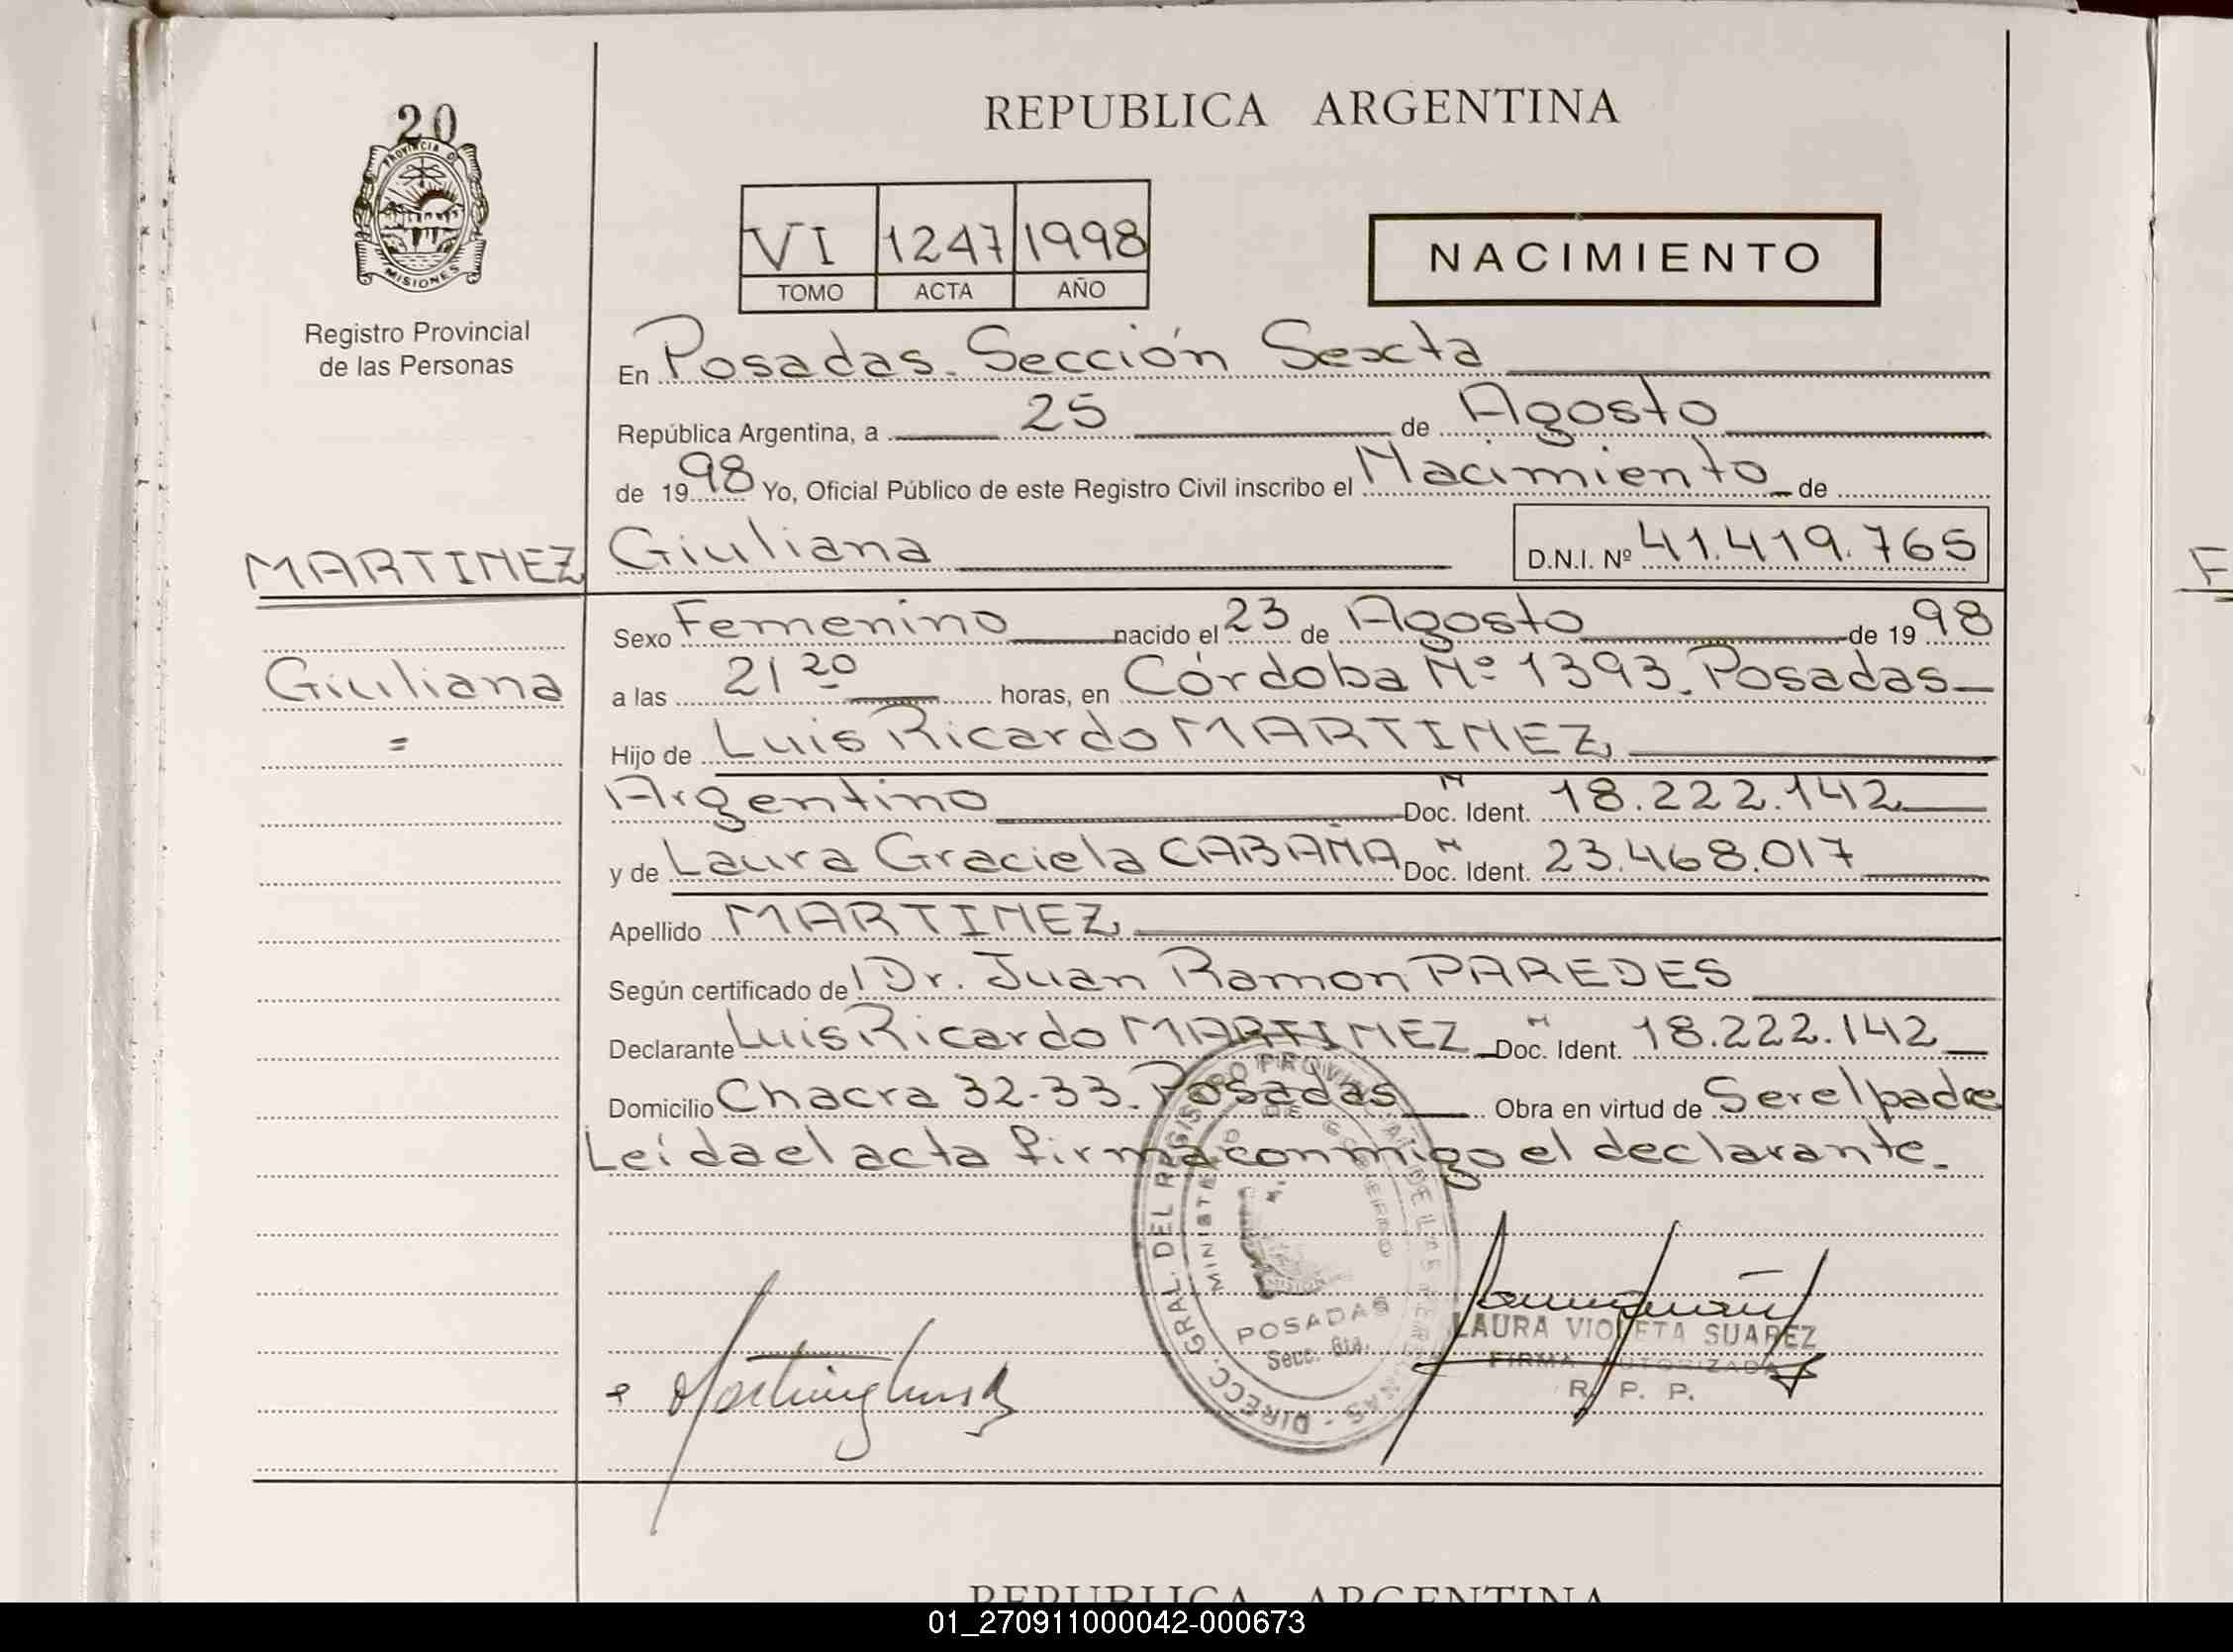 REPUBLICA ARGENTINA
20
PROVINCIA D
MISIONES
Registro Provincial
de las Personas
VI 1247 1998
TOMO ACTA AÑO
NACIMIENTO
En Posadas. Sección Sexta
República Argentina, a 25 de Agosto
de 1998 Yo, Oficial Público de este Registro Civil inscribo el Nacimiento de
MARTINEZ Giuliana D.N.I. Nº 41.419.765
Sexo Femenino nacido el 23 de Agosto de 1998
Giuliana
a las 21 20 horas, en Córdoba Nº 1393. Posadas
Hijo de Luis Ricardo MARTINEZ,
Argentino Doc. Ident. N 18.222.142
y de Laura Graciela CABAÑA Doc. Ident. N 23.468.017
Apellido MARTINEZ,
Según certificado de Dr. Juan Ramon PAREDES
Declarante Luis Ricardo MARTINEZ Doc. Ident. N 18.222.142
Domicilio Chacra 32-33. Posadas Obra en virtud de Ser el padre
Leída el acta firma conmigo el declarante.
DIRECC. GRAL. DEL REGISTRO PROVINCIAL DE LAS PERSONAS
MINISTERIO DE GOBIERNO
POSADAS
Secc. 6ta.
LAURA VIOLETA SUAREZ
FIRMA AUTORIZADA
R. P. P.
REPUBLICA ARGENTINA
01_270911000042-000673